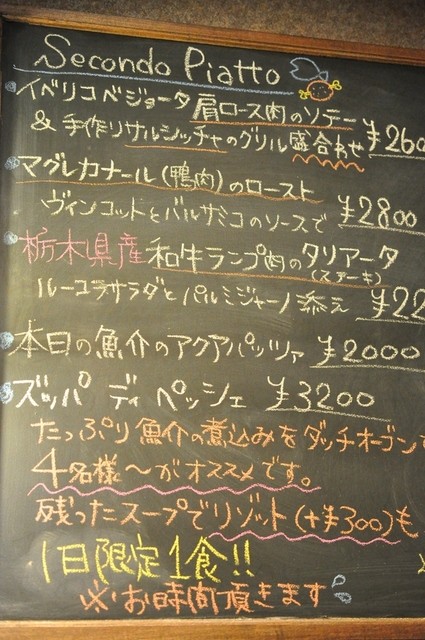 Secondo Piatto
イベリコベジョータ肩ロース肉のソテー
& 手作りサルシッチャのグリル盛合わせ ¥260
マグレカナール(鴨肉)のロースト
ヴィンコットとバルサミコのソースで ¥2800
栃木県産和牛ランプ肉のタリアータ
(ステーキ)
ルーコラサラダとパルミジャーノ添え ¥22
本日の魚介のアクアパッツァ ¥2000
ズッパ ディ ペッシェ ¥3200
たっぷり魚介の煮込みをダッチオーブンで
4名様〜がオススメです。
残ったスープでリゾット(+¥300)も
1日限定1食!!
※お時間頂きます